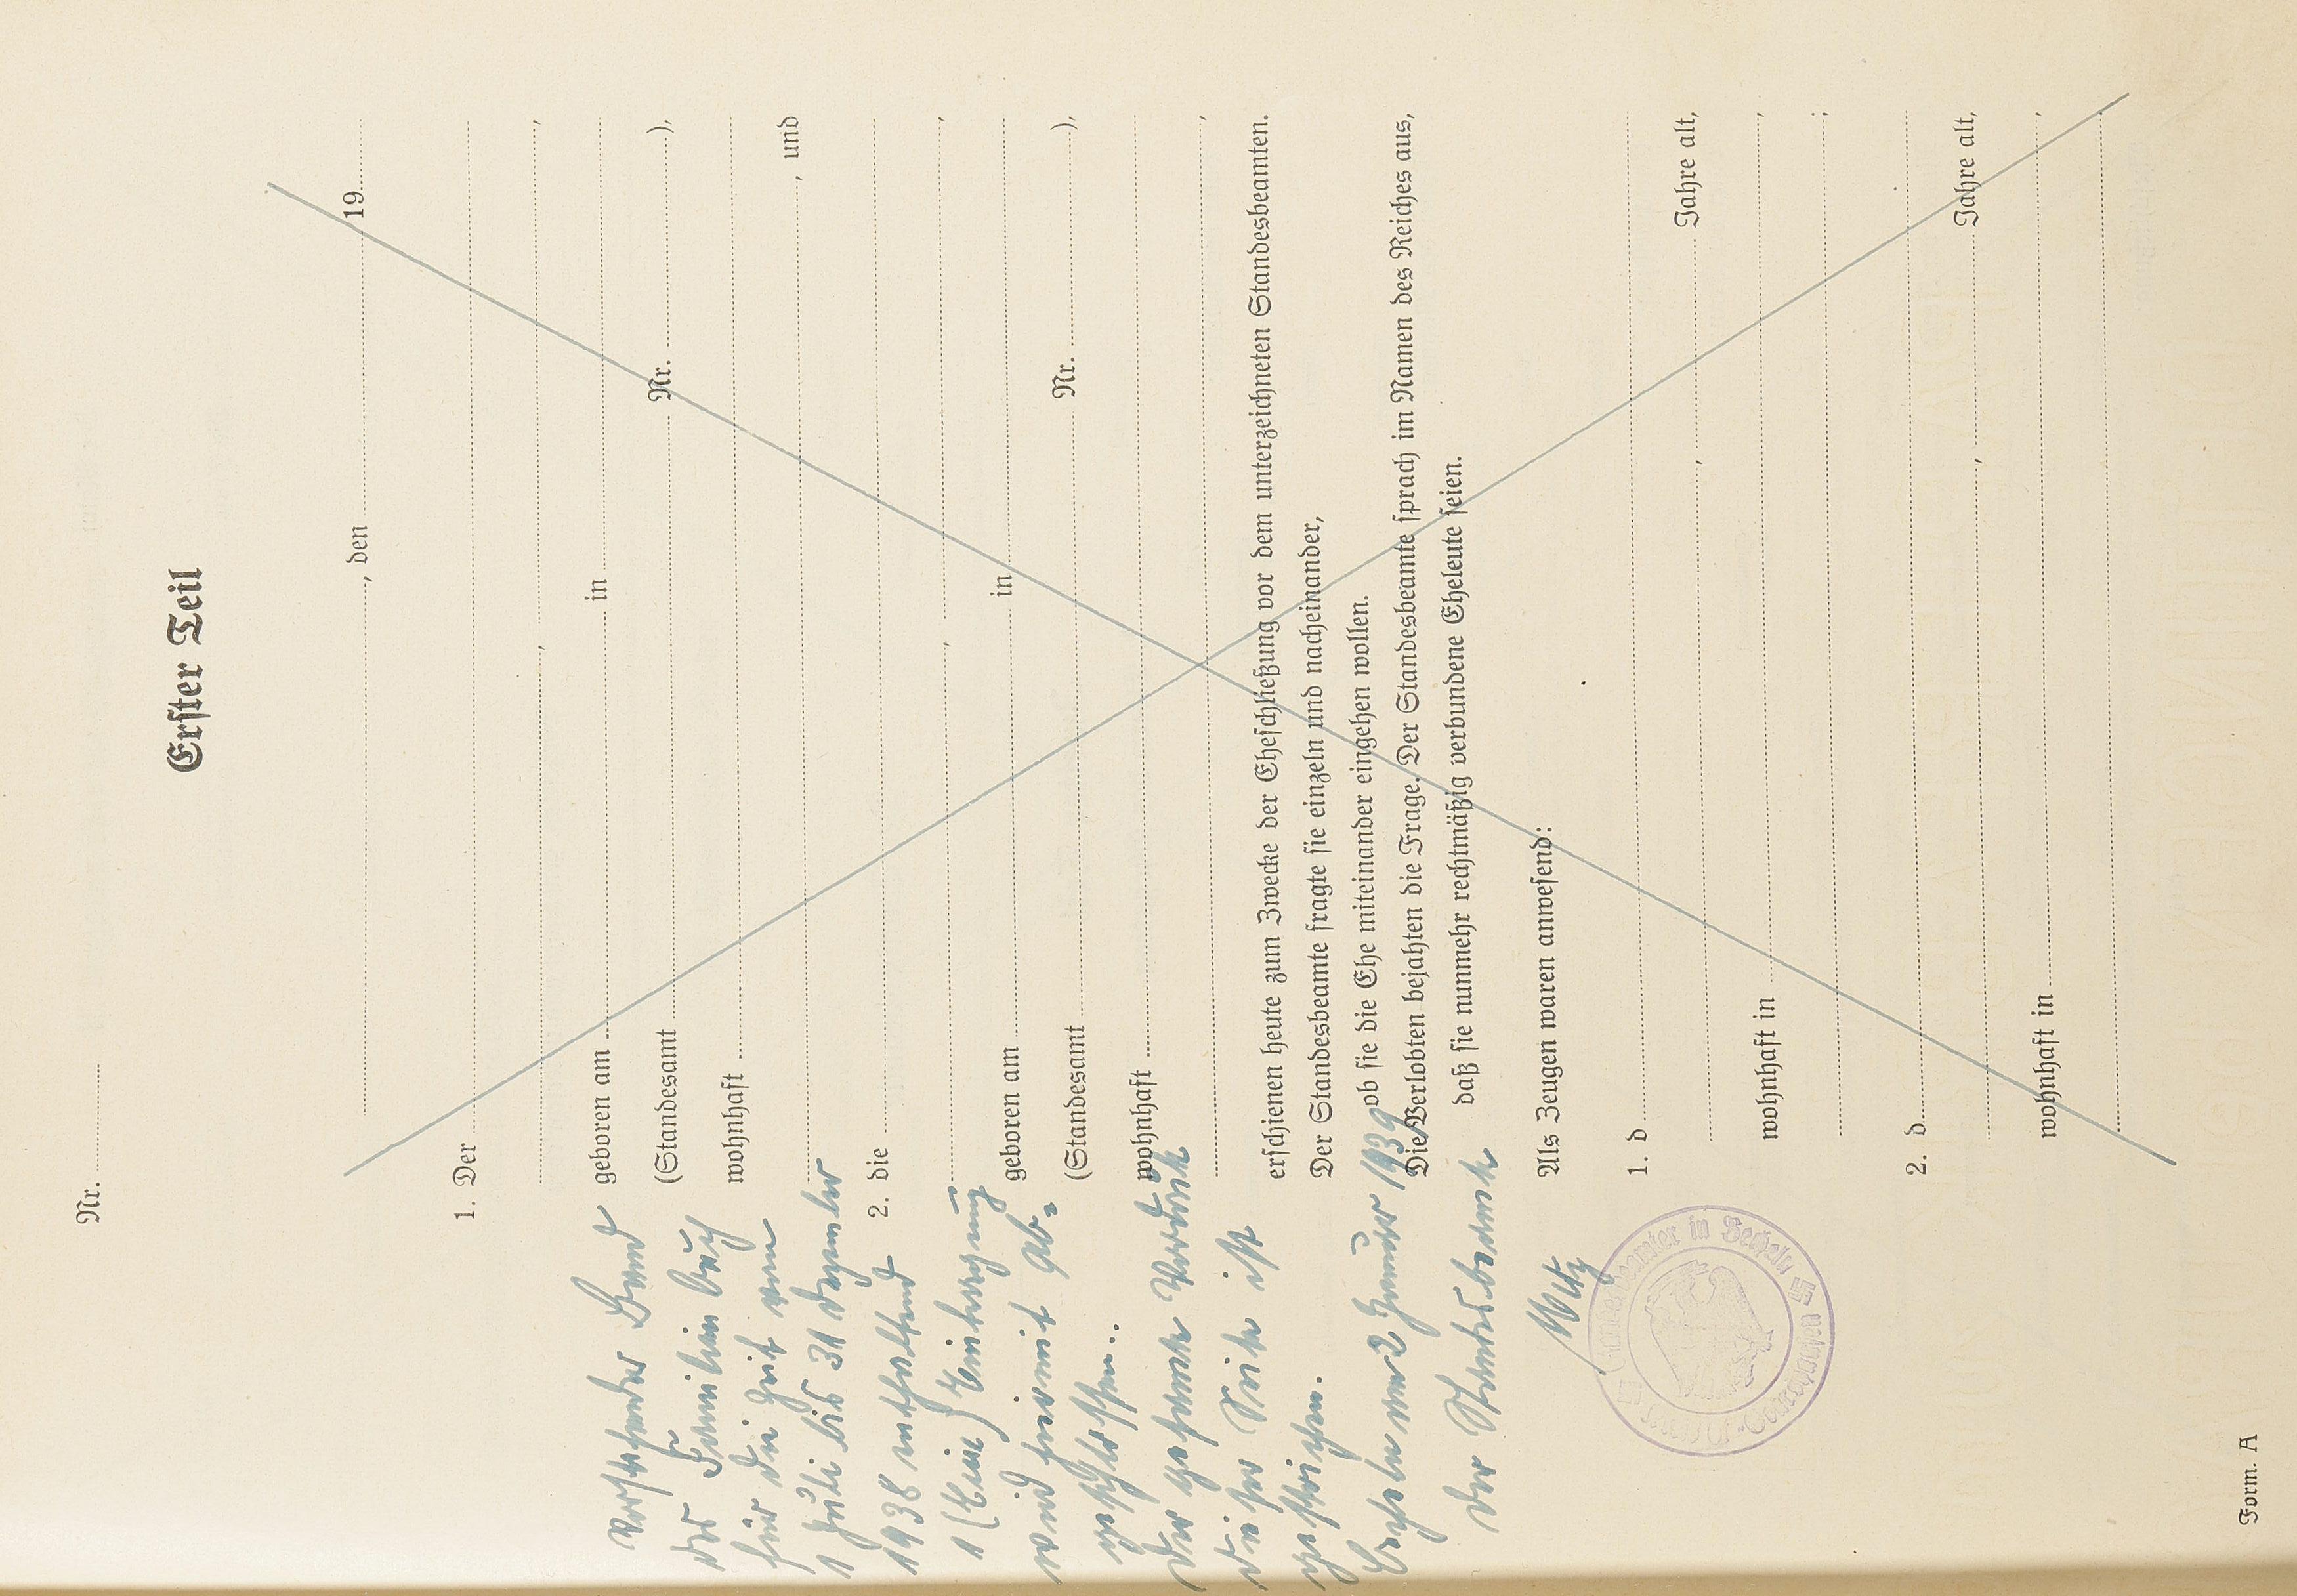 Nr.
Erster Teil
, den 19
1. Der
,
,
geboren am in
(Standesamt Nr. ),
wohnhaft
, und
2. die
,
,
geboren am in
(Standesamt Nr. ),
wohnhaft
,
erschienen heute zum Zwecke der Eheschließung vor dem unterzeichneten Standesbeamten.
Der Standesbeamte fragte sie einzeln und nacheinander,
ob sie die Ehe miteinander eingehen wollen.
Die Verlobten bejahten die Frage. Der Standesbeamte sprach im Namen des Reiches aus,
daß sie nunmehr rechtmäßig verbundene Eheleute seien.
Als Zeugen waren anwesend:
1. d
, Jahre alt,
wohnhaft in ,
;
2. d
, Jahre alt,
wohnhaft in ,
Vorstehender Band
des Familienbuch
für die Zeit vom
1 Juli bis 31 Dezember
1938 enthaltend
1 (Eine) Eintragung
wird hiermit ab=
geschlossen..
Der gesamte Vordruck
dieser Seite ist
gestrichen.
Becheln am 2 Januar 1939
Der Standesbeamte
Der Standesbeamte in Becheln
Form. A